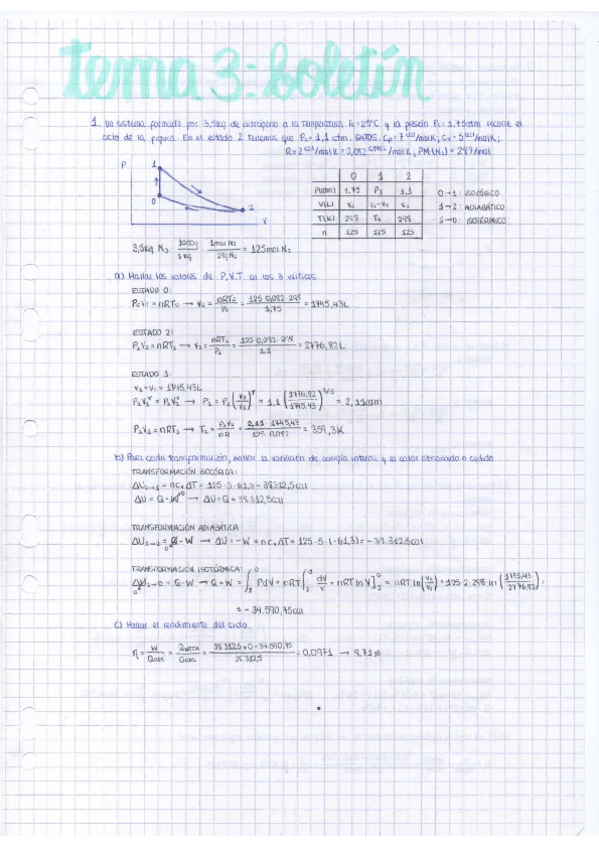 tema 3: boletín
1. Un sistema formado por 3,5kg de nitrógeno a la temperatura T0=25ºC y la presión P0=1,75atm recorre el
ciclo de la figura. En el estado 2 tenemos que P2=1,1 atm. DATOS: Cp=7 cal/molK; Cv=5 cal/molK;
R=2 cal/molK=0,082 atm·L/molK; PM(N2)=28g/mol
P
1
0
2
V
0 1 2
P(atm) 1,75 P1 1,1
V(L) V0 V1=V0 V2
T(K) 298 T1 298
n 125 125 125
0→1: ISOCÓRICO
1→2: ADIABÁTICO
2→0: ISOTÉRMICO
3,5kg N2 · 1000g/1kg · 1mol N2/28g N2 = 125mol N2
a) Hallar los valores de P, V, T en los 3 vértices.
ESTADO 0:
P0V0=nRT0 → V0 = nRT0/P0 = 125·0,082·298/1,75 = 1745,43L
ESTADO 2:
P2V2=nRT2 → V2 = nRT2/P2 = 125·0,082·298/1,1 = 2776,82L
ESTADO 1:
V1=V0=1745,43L
P1V1^γ = P2V2^γ → P1 = P2(V2/V1)^γ = 1,1 (2776,82/1745,43)^7/5 = 2,11atm
P1V1=nRT1 → T1 = P1V1/nR = 2,11·1745,43/125·0,082 = 359,3K
b) Para cada transformación, hallar la variación de energía interna y el calor absorbido o cedido
TRANSFORMACIÓN ISOCÓRICA:
ΔU0→1 = ncvΔT = 125·5·61,3 = 38312,5cal
ΔU = Q-W → ΔU=Q = 38312,5cal
TRANSFORMACIÓN ADIABÁTICA
ΔU1→2 = Q-W → ΔU = -W = ncvΔT = 125·5·(-61,3) = -38.312,5cal
TRANSFORMACIÓN ISOTÉRMICA:
ΔU2→0 = Q-W → Q=W = ∫PdV = nRT∫dV/V = nRT ln V]= nRT ln(V0/V2) = 125·2·298·ln(1745,43/2776,82) =
= -34.590,75cal
c) Hallar el rendimiento del ciclo.
η = W/Qabs = Qneto/Qabs = 38312,5+0-34590,75/38312,5 = 0,0971 → 9,71%